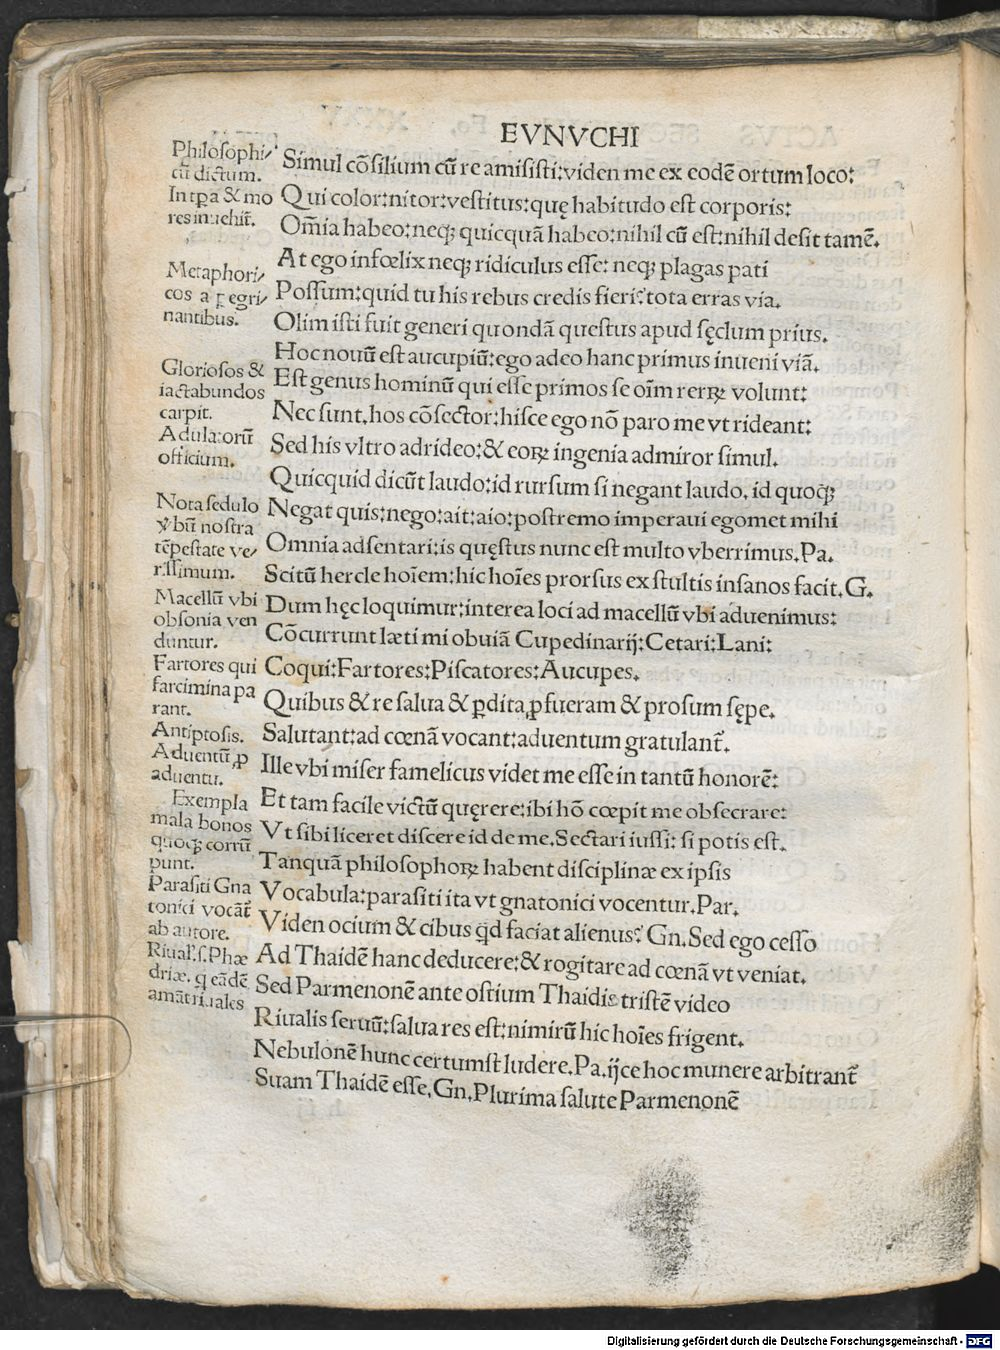 EVNVCHI
Philosophi/
cũ dictum.
In tꝑa & mo
res inuehit̃.
Metaphori/
cos a ꝑegri/
nantibus.
Gloriosos &
iactabundos
carpit.
Adulatorũ
officium.
Nota sedulo
v̓bũ nostra
tẽpestate ve/
rissimum.
Macellũ vbi
obsonia ven
duntur.
Fartores qui
farcimina pa
rant.
Antiptosis.
Aduentũ, ꝓ
aduentu.
Exempla
mala bonos
quoqꝫ corrũ
punt.
Parasiti Gna
tonici vocãt̃
ab autore.
Riual'. s. Phæ
driæ. q eãdẽ
amãt riuales
Simul cõsilium cũ re amisisti: viden me ex eodẽ ortum loco:
Qui color: nitor: vestitus: quę habitudo est corporis:
Om̃ia habeo: neqꝫ quicquã habeo: nihil cũ est: nihil desit tamẽ.
At ego infœlix neqꝫ ridiculus esse: neqꝫ plagas pati
Possum: quid tu his rebus credis fieri? tota erras via.
Olim isti fuit generi quondã questus apud sęclum prius.
Hoc nouũ est aucupiũ: ego adeo hanc primus inueni viã.
Est genus hominũ qui esse primos se oĩm rerꝝ volunt:
Nec sunt, hos cõsector: hisce ego nõ paro me vt rideant:
Sed his vltro adrideo: & eoꝝ ingenia admiror simul.
Quicquid dicũt laudo: id rursum si negant laudo, id quoqꝫ
Negat quis: nego: ait: aio: postremo imperaui egomet mihi
Omnia adsentari: is quęstus nunc est multo vberrimus. Pa.
Scitũ hercle hoĩem: hic hoĩes prorsus ex stultis insanos facit. G.
Dum hęc loquimur: interea loci ad macellũ vbi aduenimus:
Cõcurrunt læti mi obuiã Cupedinarij: Cetari: Lani:
Coqui: Fartores: Piscatores: Aucupes.
Quibus & re salua & ꝑdita, ꝓfueram & prosum sępe.
Salutant: ad cœnã vocant: aduentum gratulant̃.
Ille vbi miser famelicus videt me esse in tantũ honorẽ:
Et tam facile victũ quęrere: ibi hõ cœpit me obsecrare:
Vt sibi liceret discere id de me. Sectari iussi: si potis est.
Tanquã philosophoꝝ habent disciplinæ ex ipsis
Vocabula: parasiti ita vt gnatonici vocentur. Par.
Viden ocium & cibus qd̓ faciat alienus? Gn. Sed ego cesso
Ad Thaidẽ hanc deducere: & rogitare ad cœnã vt veniat.
Sed Parmenonẽ ante ostium Thaidis tristẽ video
Riualis seruũ: salua res est: nimirũ hic hoĩes frigent.
Nebulonẽ hunc certumst ludere. Pa. ijce hoc munere arbitrant̃
Suam Thaidẽ esse. Gn. Plurima salute Parmenonẽ
Digitalisierung gefördert durch die Deutsche Forschungsgemeinschaft - DFG